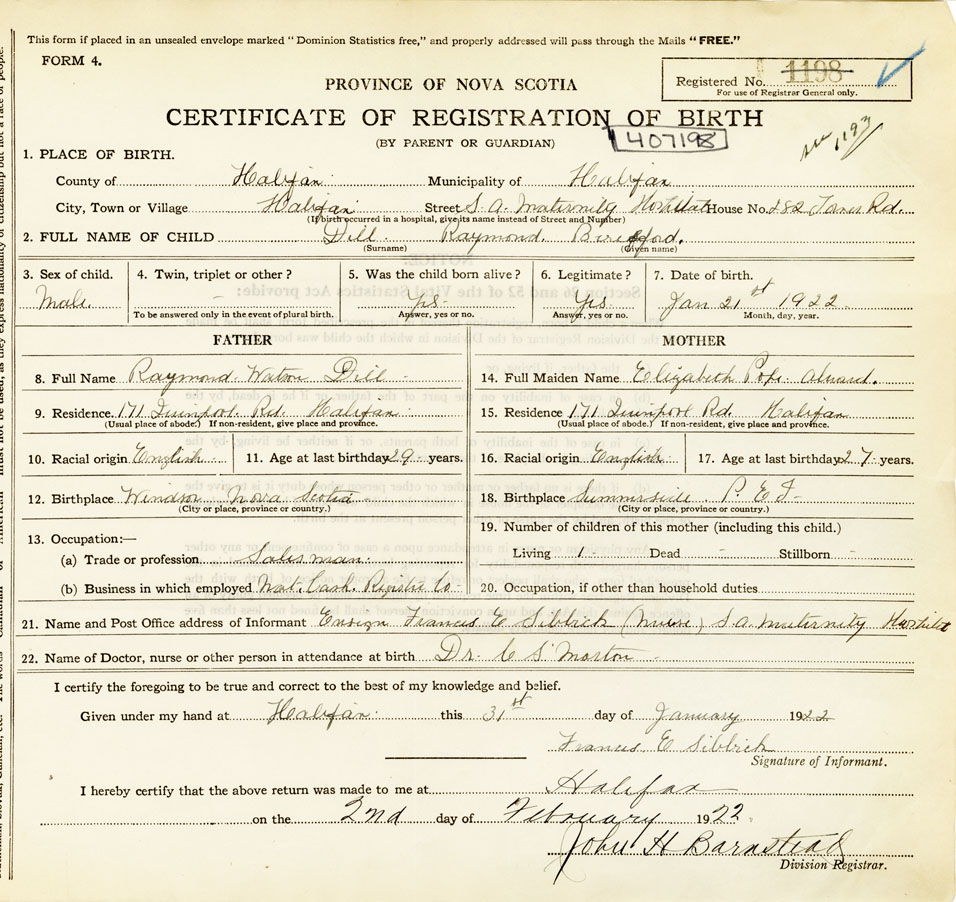 This form if placed in an unsealed envelope marked "Dominion Statistics free," and properly addressed will pass through the Mails "FREE."
FORM 4.
Registered No. 1198
For use of Registrar General only.
PROVINCE OF NOVA SCOTIA
CERTIFICATE OF REGISTRATION OF BIRTH
(BY PARENT OR GUARDIAN)
407198
see 1193
1. PLACE OF BIRTH.
County of Halifax Municipality of Halifax
City, Town or Village Halifax Street S. A. Maternity Hospital House No. 282 Tower Rd.
(If birth occurred in a hospital, give its name instead of Street and Number)
2. FULL NAME OF CHILD Dill Raymond
(Surname) (Given name)
3. Sex of child. 4. Twin, triplet or other? 5. Was the child born alive? 6. Legitimate? 7. Date of birth.
Male. - Yes Yes Jan 21st 1922
To be answered only in the event of plural birth. Answer, yes or no. Answer, yes or no. Month, day, year.
FATHER
8. Full Name Raymond Watson Dill
9. Residence. 171 Quinpool Rd. Halifax
(Usual place of abode.) If non-resident, give place and province.
10. Racial origin English 11. Age at last birthday 29 years.
12. Birthplace Windsor Nova Scotia
(City or place, province or country.)
13. Occupation:—
(a) Trade or profession Salesman
(b) Business in which employed Nat. Cash. Register Co
MOTHER
14. Full Maiden Name Elizabeth Pope
15. Residence 171 Quinpool Rd. Halifax
(Usual place of abode.) If non-resident, give place and province.
16. Racial origin English 17. Age at last birthday 27 years.
18. Birthplace Summerside P. E I
(City or place, province or country.)
19. Number of children of this mother (including this child.)
Living 1 Dead - Stillborn -
20. Occupation, if other than household duties
21. Name and Post Office address of Informant Ensign Francis E Sibbrick (Nurse) S. A. Maternity Hospital
22. Name of Doctor, nurse or other person in attendance at birth Dr. C S Morton
I certify the foregoing to be true and correct to the best of my knowledge and belief.
Given under my hand at Halifax this 31st day of January 1922
Francis E Sibbrick
Signature of Informant.
I hereby certify that the above return was made to me at Halifax
on the 2nd day of February 1922
John H Barnstead
Division Registrar.